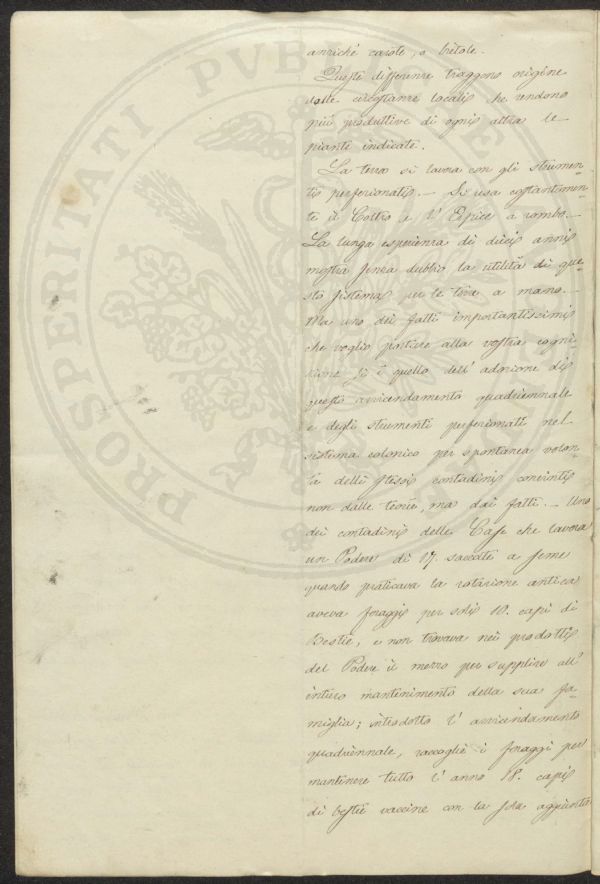 anziché carote, o bietole.
Queste differenze traggono origine
dalle circostanze locali che rendono
più produttive di ogni altra le
piante indicate.
La terra si lavora con gli strumen-
ti perfezionati. — Si usa costantemen-
te il Coltro e l'Erpice a rombo. —
La lunga esperienza di dieci anni
mostra senza dubbio la utilità di que-
sto sistema per le terre a mano. —
Ma uno dei fatti importantissimi
che voglio portare alla vostra cogni-
zione si è quello dell'adozione di
questo avvicendamento quadriennale
e degli strumenti perfezionati nel
sistema colonico per spontanea volon-
tà delli stessi contadini convinti
non dalle teorie, ma dai fatti. — Uno
dei contadini delle Case che lavora
un Podere di 17. saccate a seme
quando praticava la rotazione antica
aveva foraggi per soli 10. capi di
Bestie, e non trovava nei prodotti
del Podere il mezzo per supplire all'
intero mantenimento della sua fa-
miglia; introdotto l'avvicendamento
quadriennale, raccoglie i foraggi per
mantenere tutto l'anno 18. capi
di bestie vaccine con la sola aggiunta
PROSPERITATI PVBLICAE